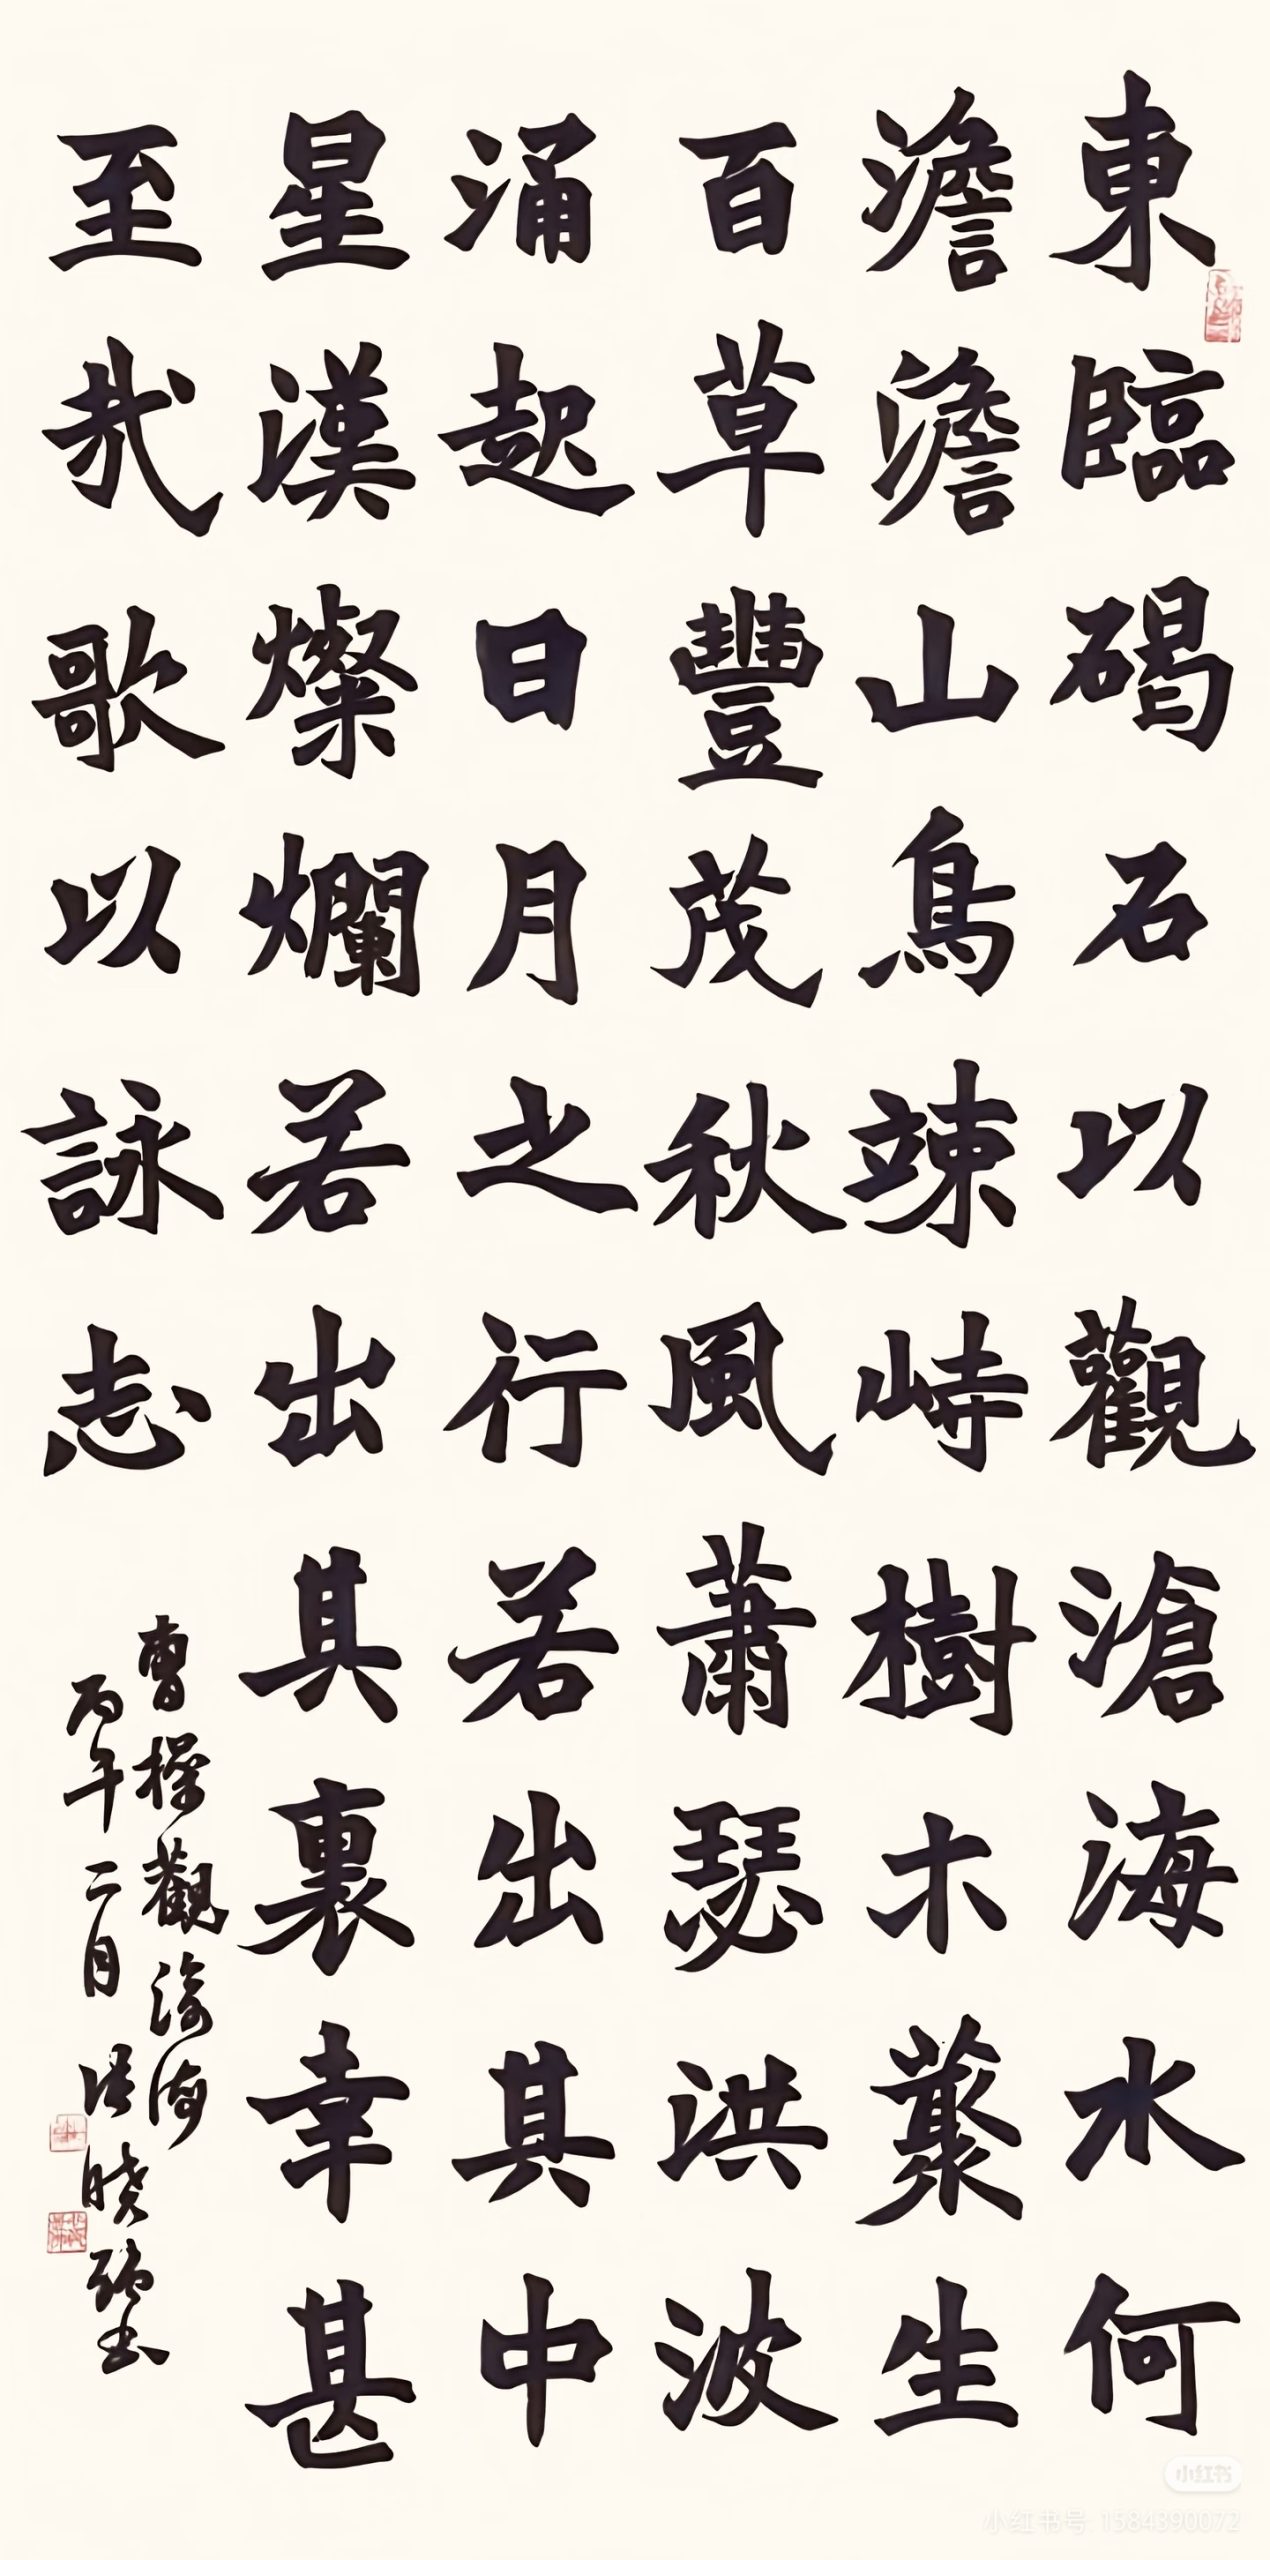 東臨碣石以觀滄海水何
澹澹山鳥竦峙樹木藂生
百草豐茂秋風蕭瑟洪波
涌起日月之行若出其中
星漢燦爛若出其裏幸甚
至哉歌以詠志
曹操觀滄海
丙午二月
小红书
小红书号: 1584390072